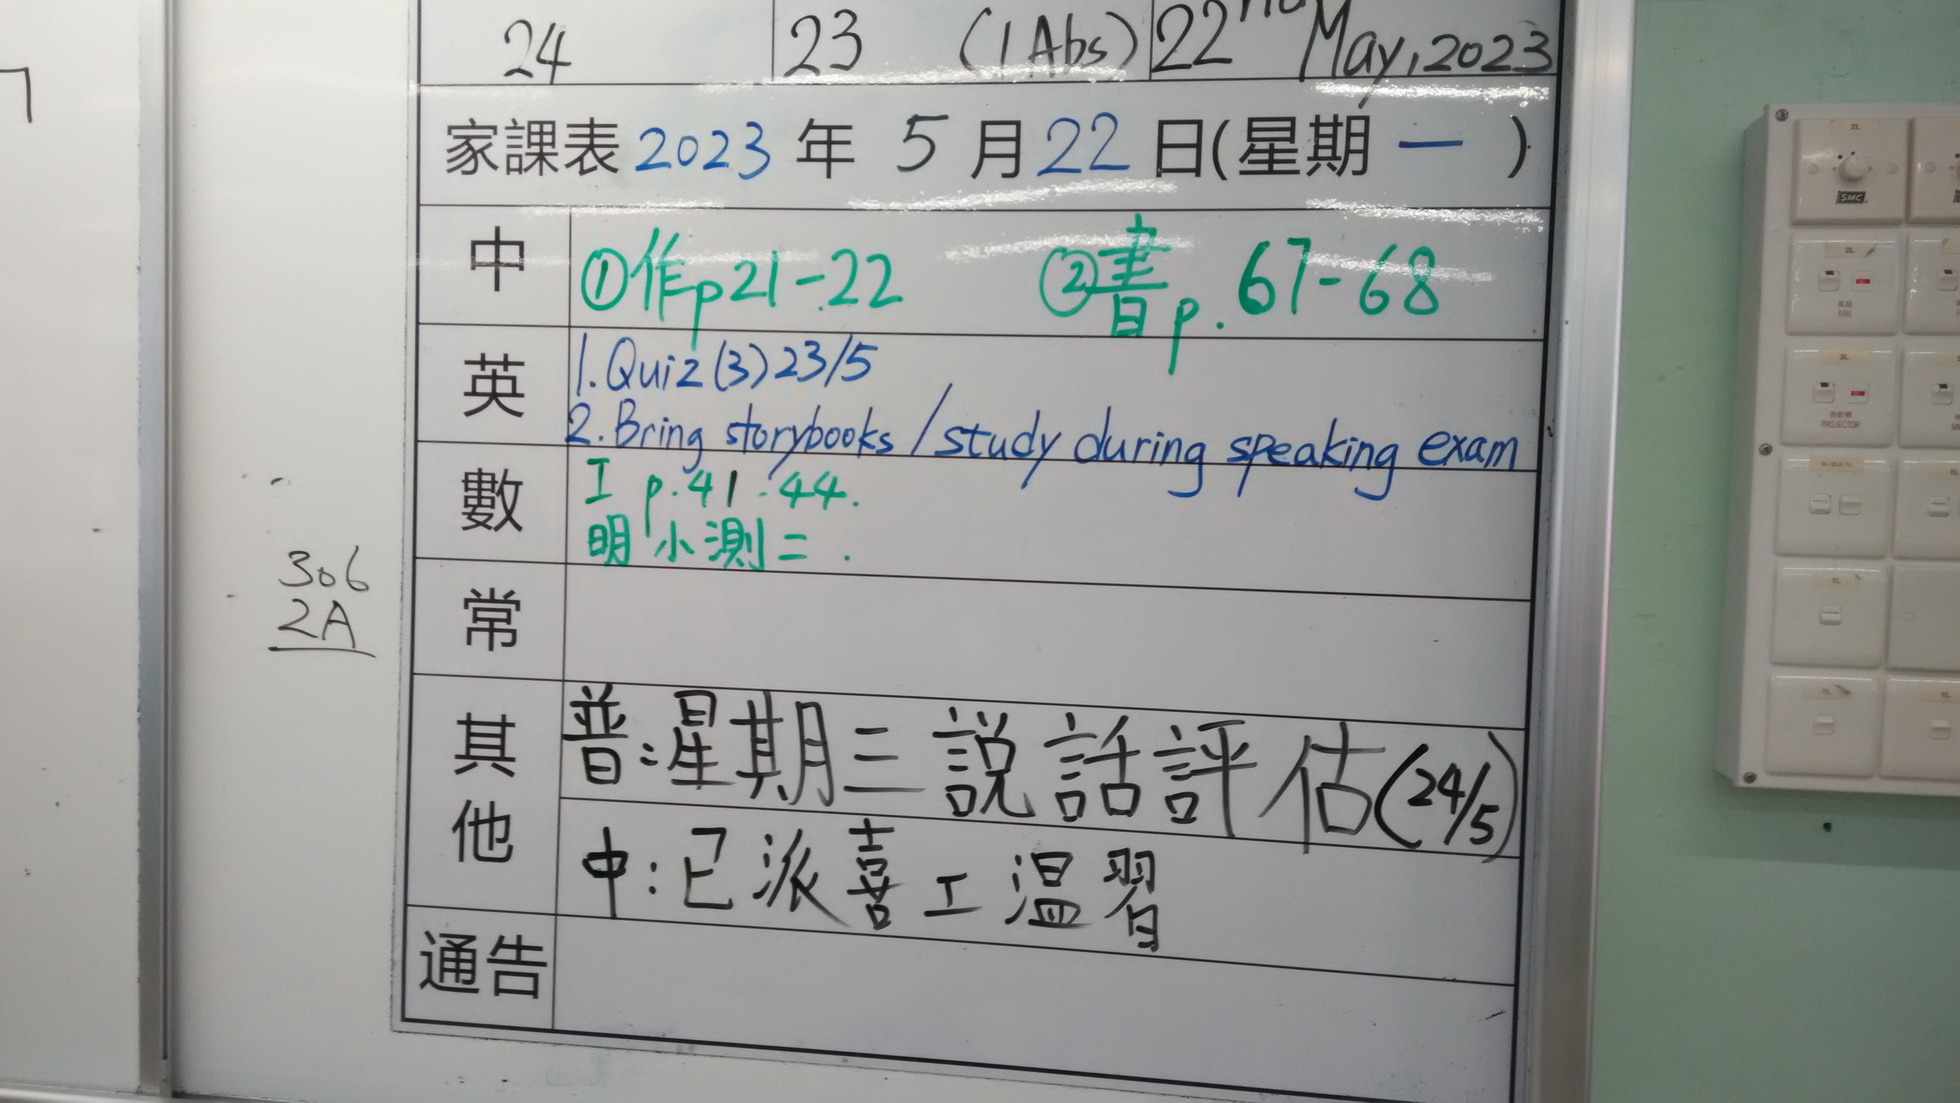 24 23 (1 Abs) 22nd May, 2023
家課表 2023 年 5 月 22 日(星期 一 )
中 ①作p21-22 ②書p.67-68
英 1. Quiz (3) 23/5
2. Bring storybooks / study during speaking exam
數 工 p.41-44.
明 小測二.
常
其他 普:星期三說話評估(24/5)
中:已派喜工温習
通告
306
2A
SMC
FAN
PROJECTOR